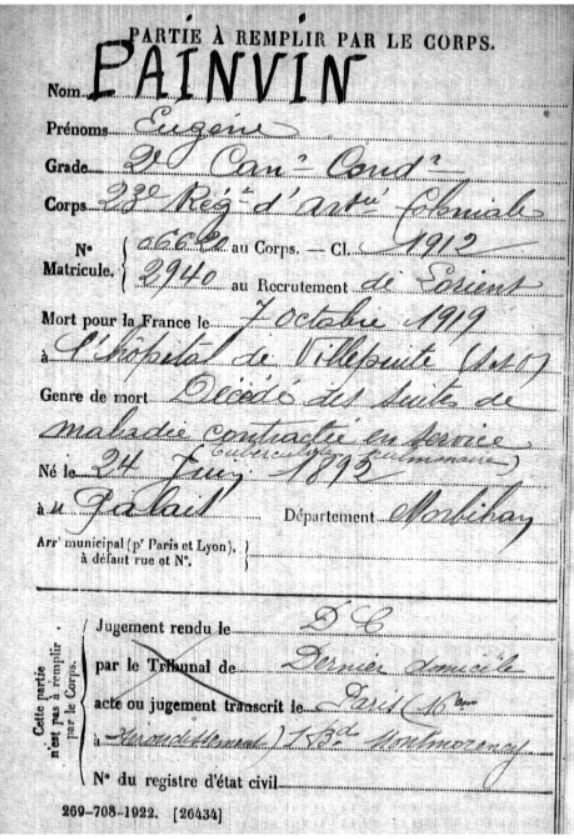 PARTIE À REMPLIR PAR LE CORPS.
Nom PAINVIN
Prénoms Eugène
Grade 2e Canr Condr
Corps 23e Régt d'Artie Coloniale
No Matricule. { 06620 au Corps. — Cl. 1912
2940 au Recrutement de Lorient
Mort pour la France le 7 octobre 1919
à l'hôpital de Villepinte (S&O)
Genre de mort Décédé des suites de
maladie contractée en service
(tuberculose pulmonaire)
Né le 24 Juin 1892
à Palais Département Morbihan
Arrt municipal (pr Paris et Lyon), à défaut rue et No. }
Cette partie n'est pas à remplir par le Corps.
Jugement rendu le D C
par le Tribunal de Dernier domicile
acte ou jugement transcrit le Paris (16em
à Arrondissement) Bd Montmorency
No du registre d'état civil
269-708-1922. [26434]